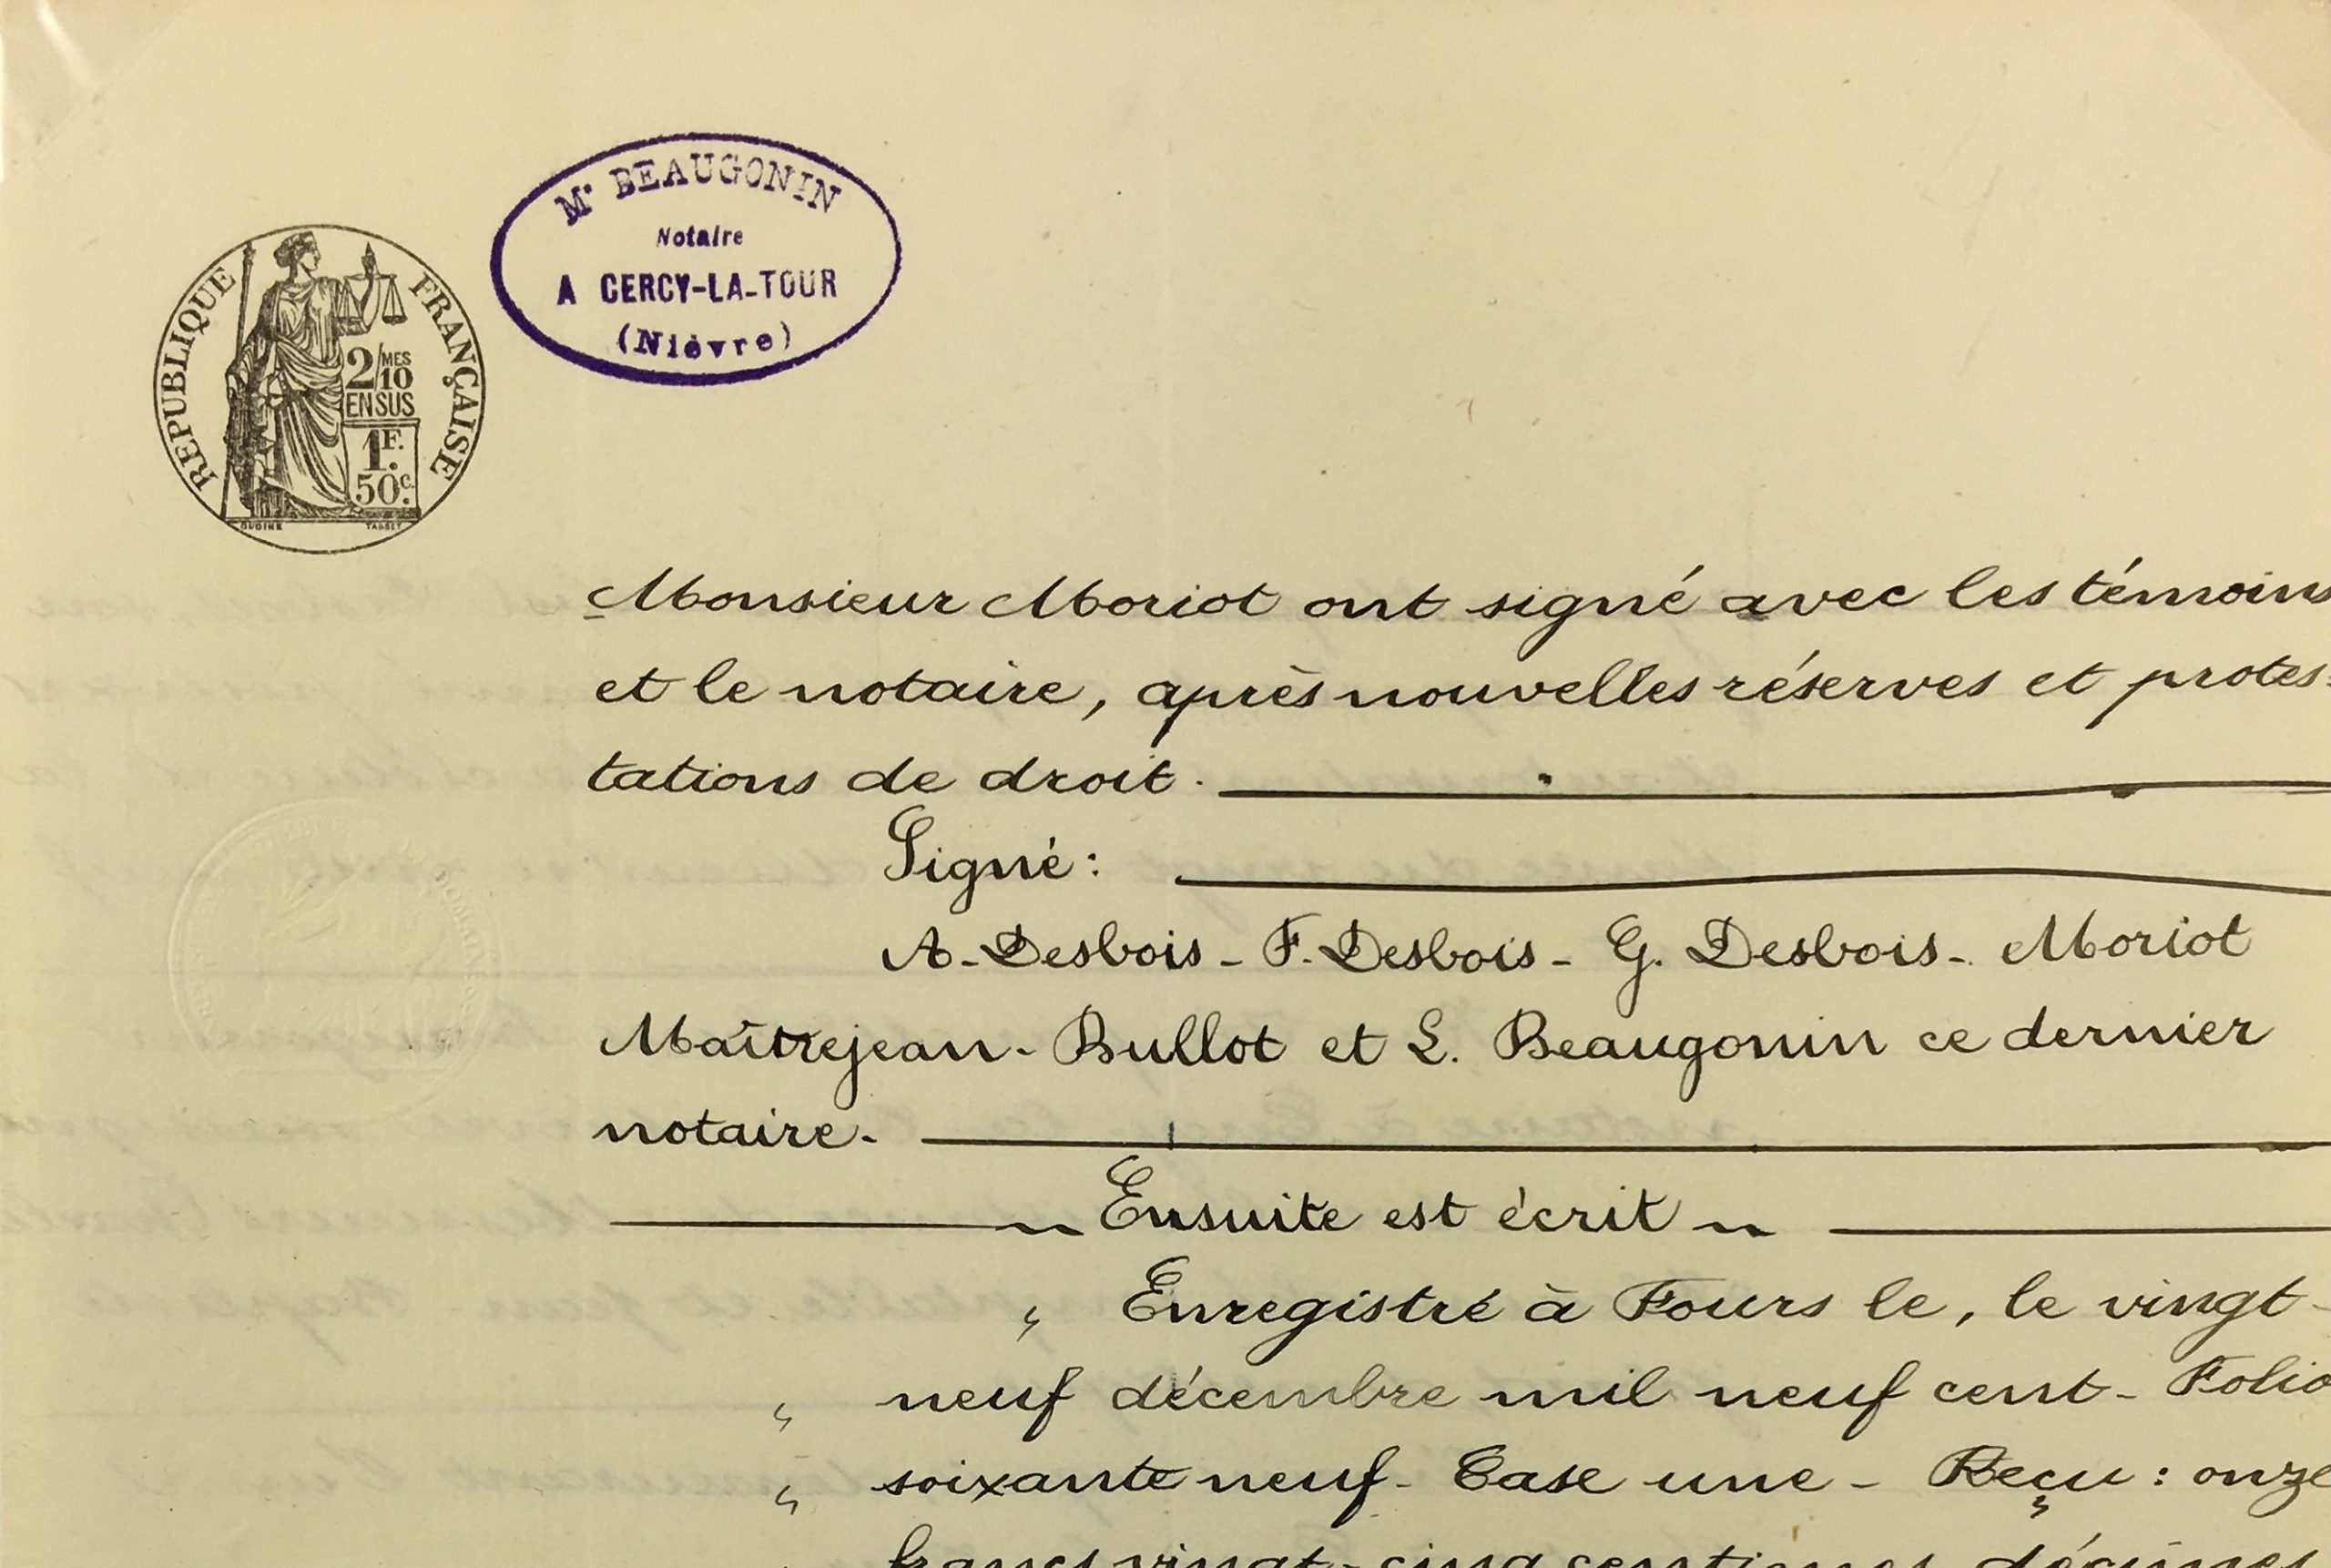 Mᵉ BEAUGONIN
Notaire
A CERCY-LA-TOUR
(Nièvre)
REPUBLIQUE FRANÇAISE
2/MES
10
EN SUS
1F.
50c.
OUDINE TASSET
Monsieur Moriot ont signé avec les témoins
et le notaire, après nouvelles réserves et protes-
tations de droit.
Signé:
A. Desbois - F. Desbois - G. Desbois - Moriot
Maîtrejean - Bullot et L. Beaugonin ce dernier
notaire.
Ensuite est écrit
" Enregistré à Fours le, le vingt-
" neuf décembre mil neuf cent - Folio
" soixante neuf - Case une - Reçu : onze
francs vingt-cinq centimes, décimes